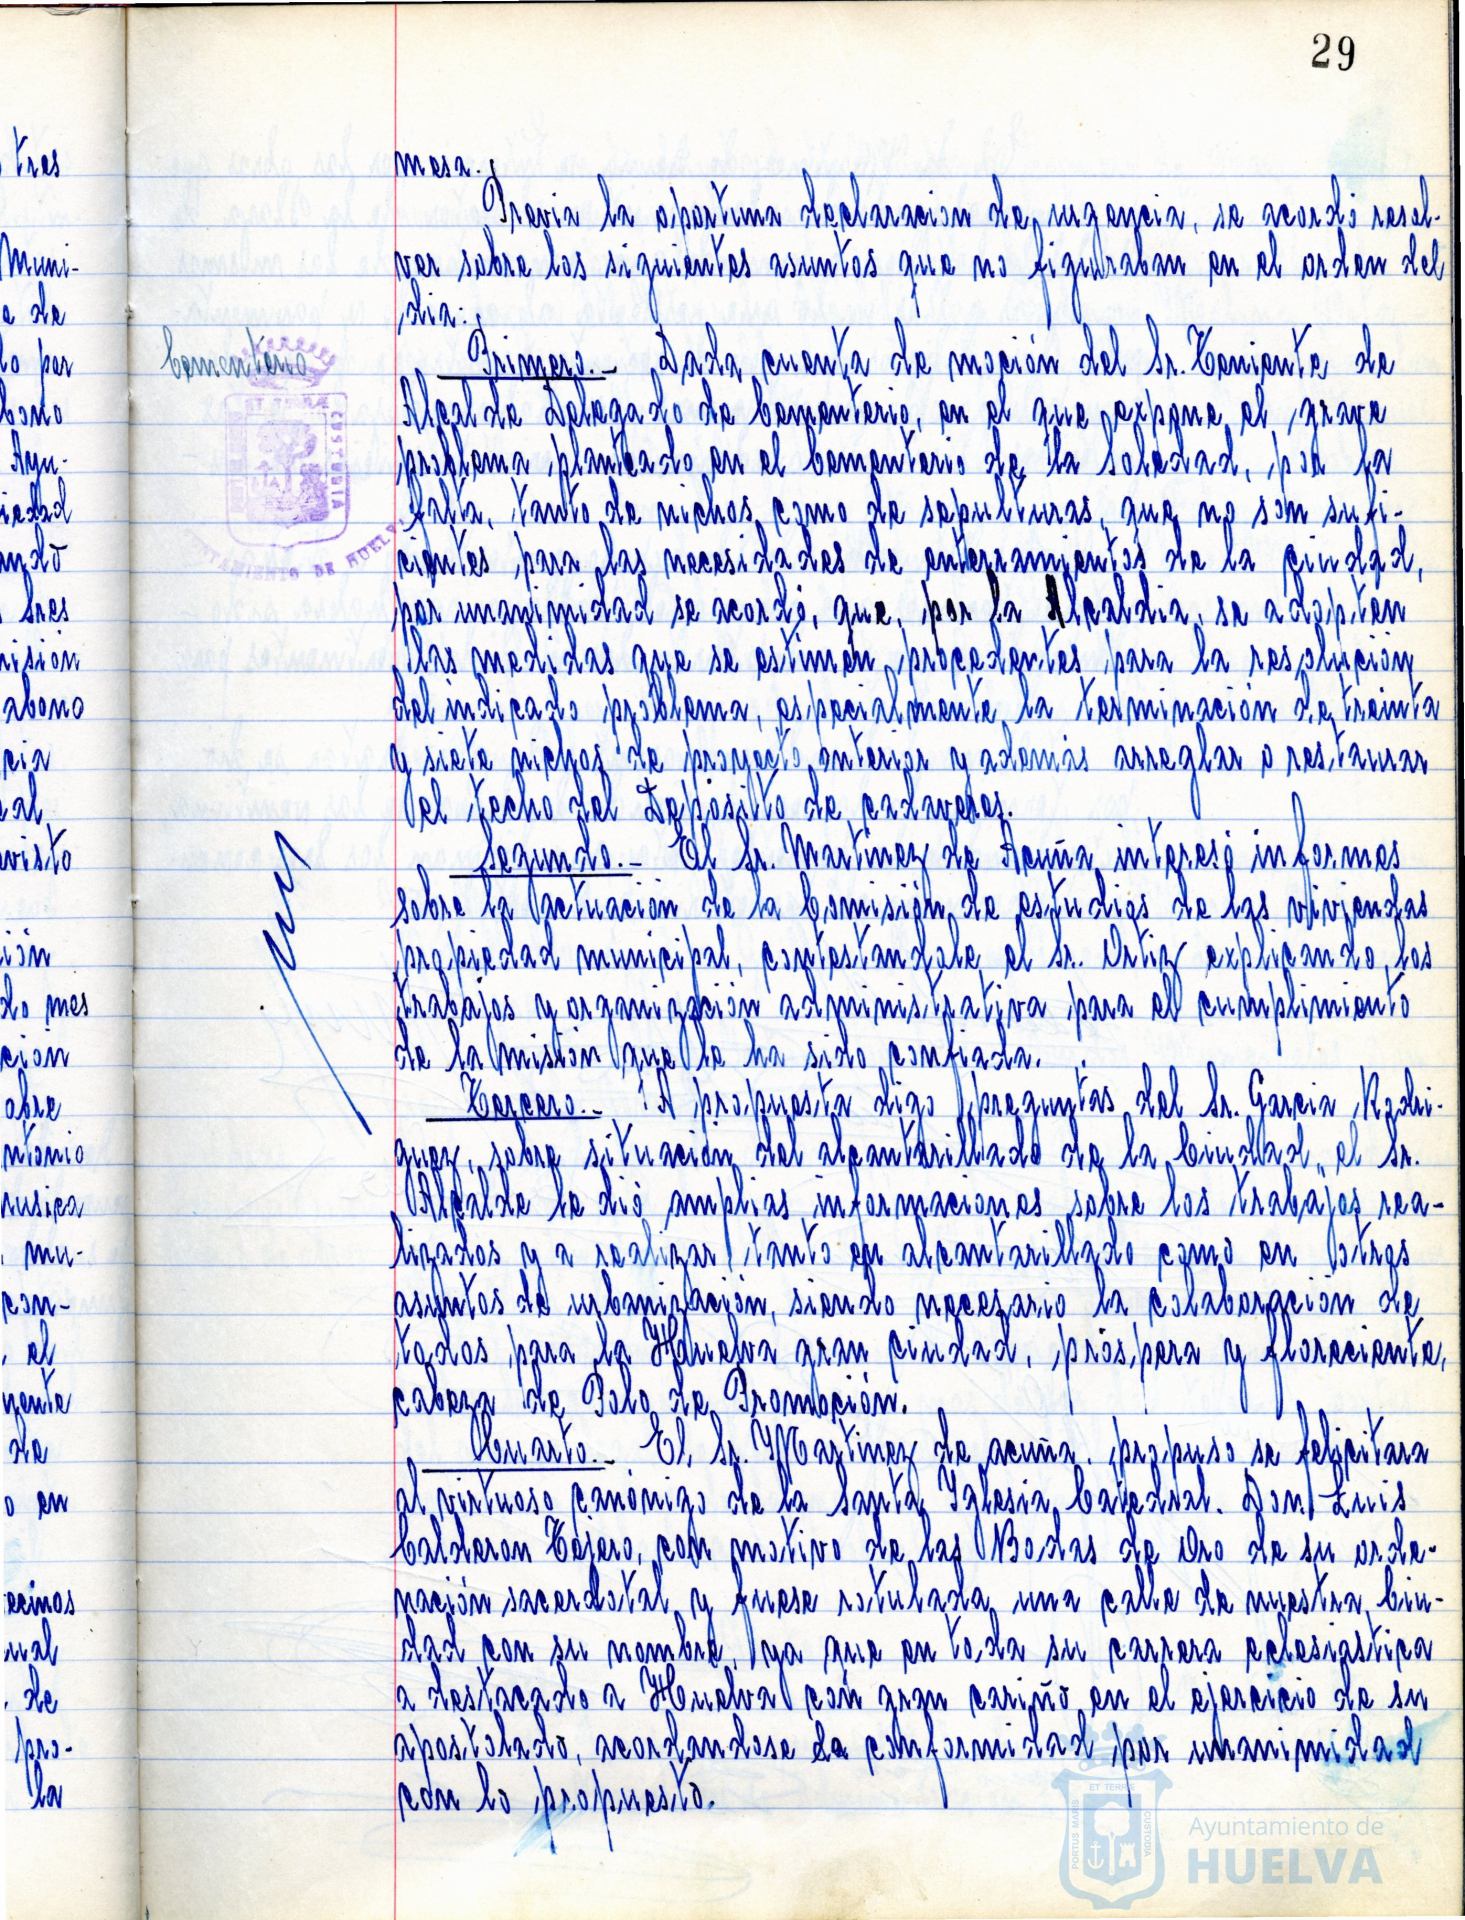 29
tres
Muni-
e de
lo por
bono
Ayu-
iedad
ando
sres
misión
abono
cia
al
visto
ión
do mes
ción
obre
ntonio
musica
, mu-
con-
, el
mente
de
o en
ecinos
ual
, de
pro-
la
Cementerio
CUSTODIA
AYUNTAMIENTO DE HUELVA
mesa.
Previa la oportuna declaracion de urgencia, se acordó resol-
ver sobre los siguientes asuntos que no figuraban en el orden del
dia:
Primero.- Dada cuenta de moción del Sr. Teniente de
Alcalde Delegado de Cementerio, en el que expone el grave
problema planteado en el Cementerio de la Soledad, por la
falta, tanto de nichos como de sepulturas, que no son sufi-
cientes para las necesidades de enterramientos de la ciudad,
por unanimidad se acordó, que, por la Alcaldia, se adopten
las medidas que se estimen procedentes para la resolución
del indicado problema, especialmente la terminación de treinta
y siete nichos de proyecto anterior y además arreglar o restaurar
el techo del Depósito de cadaveres.
Segundo.- El Sr. Martinez de Acuña interesó informes
sobre la actuación de la Comisión de estudios de las viviendas
propiedad municipal, contestandole el Sr. Ortiz explicando los
trabajos y organización administrativa para el cumplimiento
de la misión que le ha sido confiada.
Tercero.- A propuesta digo preguntas del Sr. Garcia Rodri-
guez, sobre situación del alcantarillado de la Ciudad, el Sr.
Alcalde le dió amplias informaciones sobre los trabajos rea-
lizados y a realizar tanto en alcantarillado como en otros
asuntos de urbanización, siendo necesario la colaboración de
todos para la Huelva gran ciudad, próspera y floreciente,
cabeza de Polo de Promoción.
Cuarto.- El Sr. Martinez de acuña, propuso se felicitara
al virtuoso canónigo de la Santa Iglesia Catedral. Don Luis
Calderon Tejero, con motivo de las Bodas de Oro de su orde-
nación sacerdotal y fuese rotulada una calle de nuestra Ciu-
dad con su nombre, ya que en toda su carrera eclesiastica
a destacado a Huelva con gran cariño en el ejercicio de su
apostolado, acordandose la conformidad por unanimidad
con lo propuesto.
PORTUS MARIS ET TERRE CUSTODIA
Ayuntamiento de
HUELVA